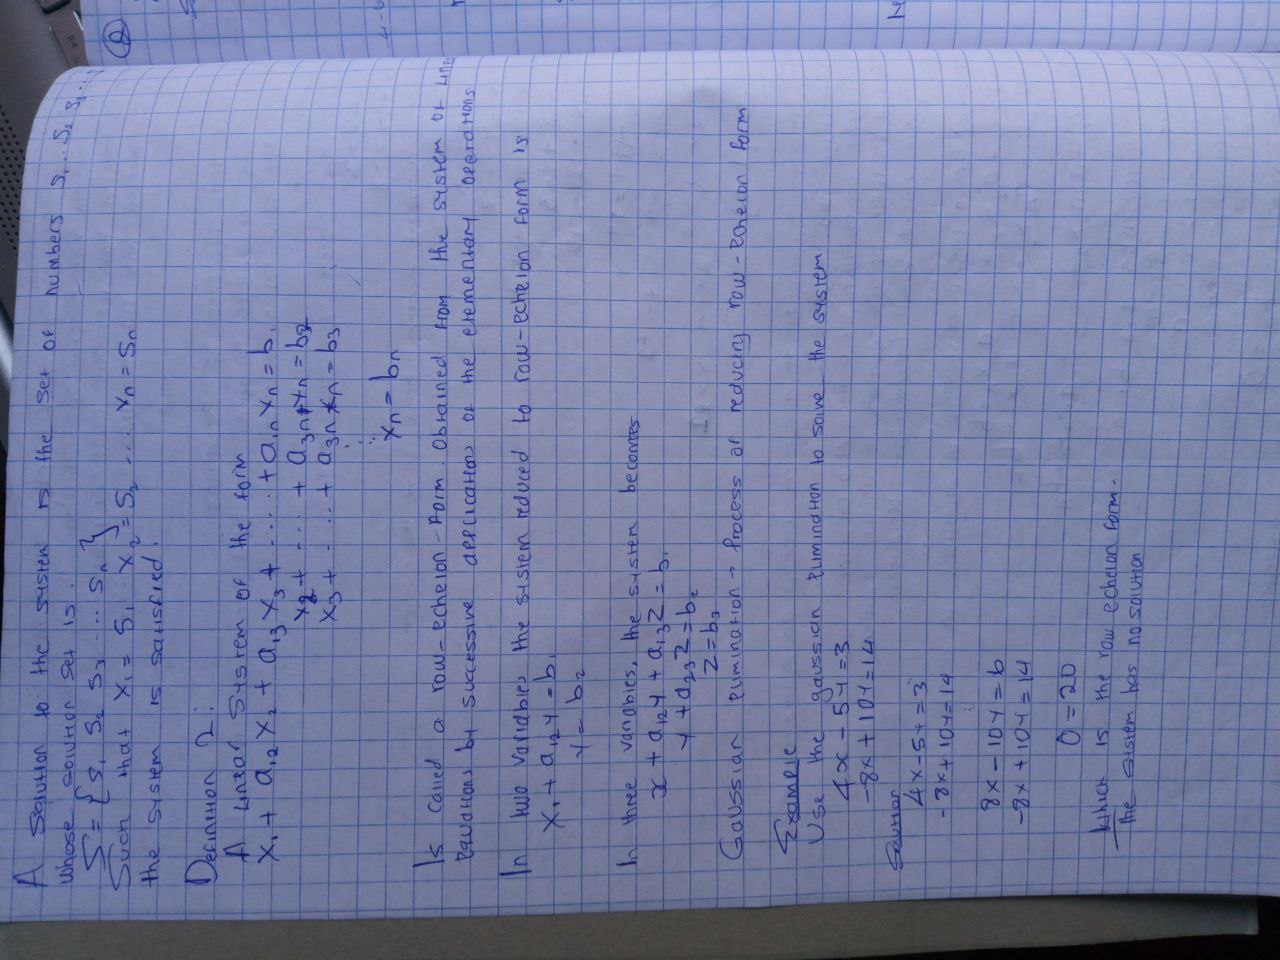 A solution to the system is the set of numbers S₁ .. S₂ S₃ ...
whose solution set is.
S = { S₁ S₂ S₃ ... Sₙ }
Such that x₁ = S₁ x₂ = S₂ ... xₙ = Sₙ
the system is satisfied.
Definition 2:
A Linear System of the form
x₁ + a₁₂x₂ + a₁₃x₃ + ..... + a₁ₙxₙ = b₁
x₂ + ... + a₃ₙ xₙ = b₂
x₃ + ... + a₃ₙ xₙ = b₃
⋮
xₙ = bₙ
Is called a row-echelon-form. Obtained from the system of linea
equations by successive applications of the elementary operations
In two variables the system reduced to row-echelon form is
x₁ + a₁₂y = b₁
y = b₂
In three variables, the system becomes
x + a₁₂y + a₁₃z = b₁
y + a₂₃z = b₂
z = b₃
Gaussian elimination → Process of reducing row-echelon form
Example
Use the gaussian elimination to solve the system
4x - 5y = 3
-8x + 10y = 14
Solution
4x - 5y = 3
-8x + 10y = 14
8x - 10y = 6
-8x + 10y = 14
0 = 20
Which is the row echelon form.
The sistem has no solution